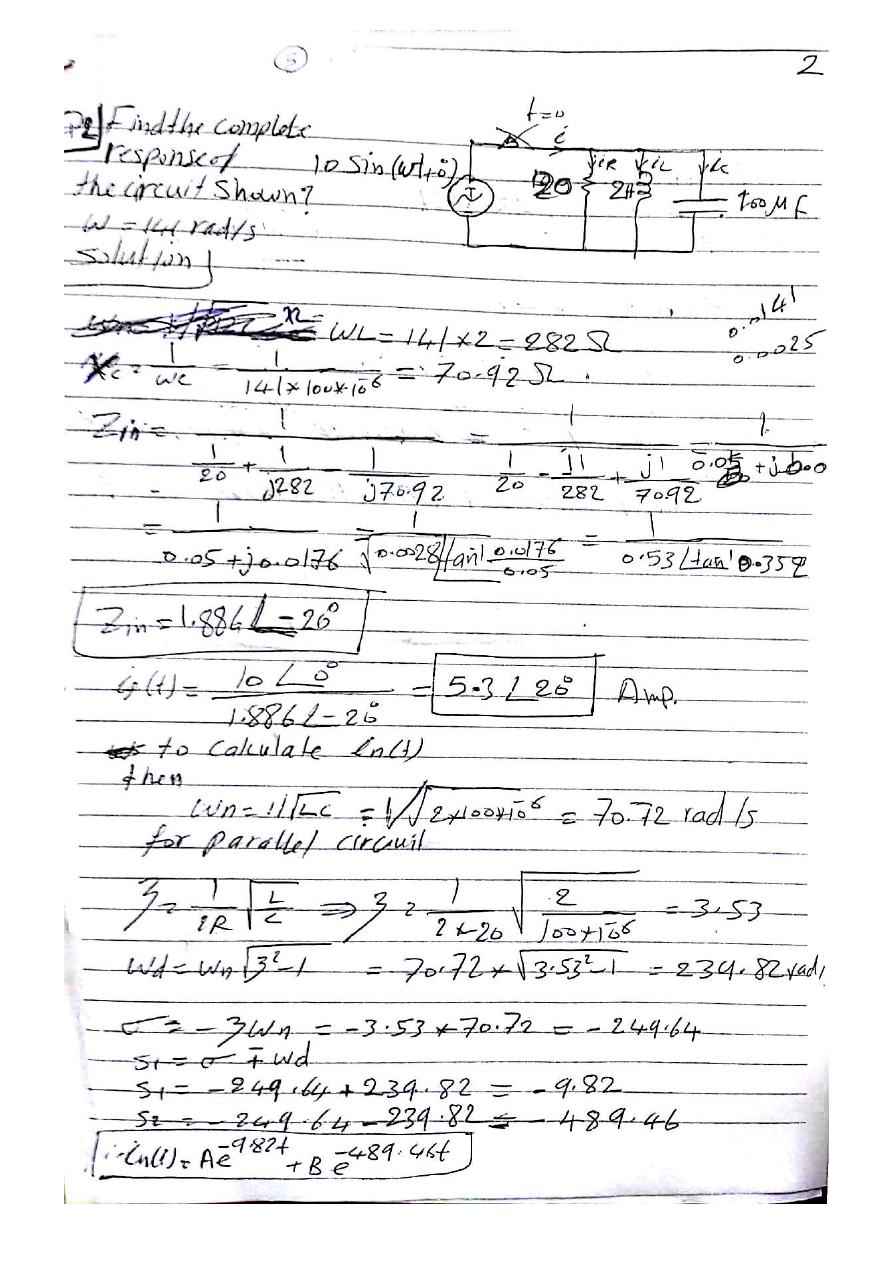 5
2
P2] Find the complete
response of
the circuit Shown?
W = 141 rad/s
Solution
10 Sin(wt+0°)
t=0
i
iR iL ic
20 2H 100 MF
XL = WL = 141 × 2 = 282 Ω
0.0141
0.0025
Xc = 1/wc = 1/(141*100*10^-6) = 70.92 Ω.
Zin = 1/(1/20 + 1/j282 - 1/j70.92) = 1/(1/20 - j1/282 + j1/70.92) = 1/(0.05 + j0.0
= 1/(0.05+j0.0176) = 1/(√0.0028 ∠tan^-1 0.0176/0.05) = 1/(0.53∠tan^-1 0.352)
Zin = 1.886∠-20°
if(t) = 10∠0°/1.886∠-20° = 5.3∠20° Amp.
to calculate in(t)
then
Wn = 1/√LC = 1/√(2*100*10^-6) = 70.72 rad/s
for parallel circuit
ʒ = 1/2R √(L/C) ⇒ ʒ = 1/(2*20) √(2/(100*10^-6)) = 3.53
Wd = Wn √(ʒ²-1) = 70.72 * √(3.53²-1) = 239.82 rad/
σ = -ʒWn = -3.53 * 70.72 = -249.64
S1 = σ ∓ Wd
S1 = -249.64 + 239.82 = -9.82
S2 = -249.64 - 239.82 = -489.46
∴ in(t) = Ae^-9.82t + Be^-489.46t